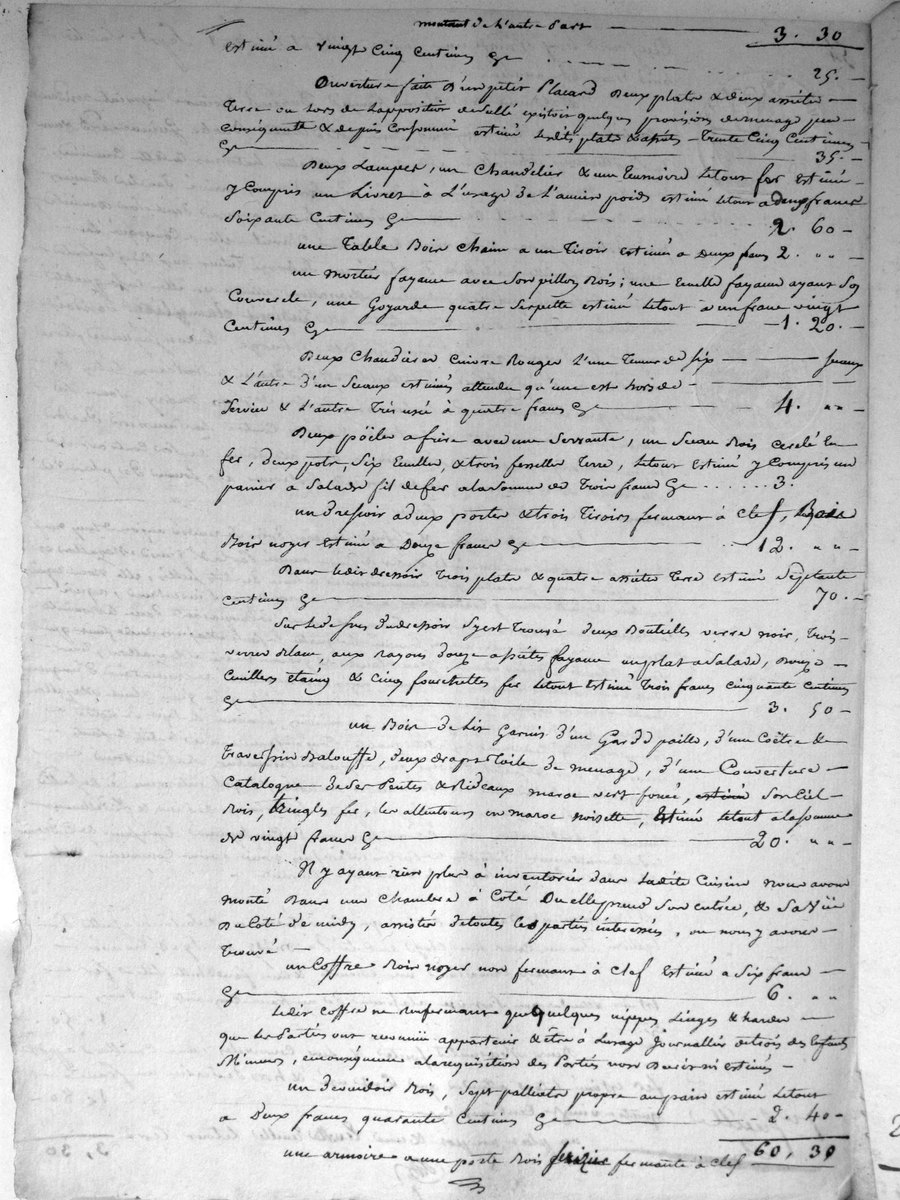 montant de l'autre part 3. 30
estimé a vingt cinq centimes Cy 25. -
Ouverture faite D'un petit Placard Deux plats & deux assiette
Terre ou lors de l'apposition de scellé existoit quelques provisions de menage peu
conséquente & depuis consommé estimé lesdits plats & assiets - Trente Cinq Centimes
Cy 35. -
Deux Lampes, un Chandelier & une le tout fer estimé
y Compris un Livret à L'usage de l'ancien poids estimé le tout a deux francs
Soixante Centimes Cy 2. 60 -
une Table Bois a un Tiroir estimée a Deux francs 2. " " -
un mortier fayance avec son pillon Bois ; une Ecuelle fayance ayant son
Couvercle, une Goyarde quatre Serpette estimé le tout a un franc vingt
Centimes Cy 1. 20. -
Deux Chaudieres Cuivre Rouge L'une Tenue de six seaux
& L'autre d'un Seaux estimés attendu qu'une est hors de
Service & L'autre Très usée à quatre francs Cy 4. " " -
Deux pöeles a frire avec une Servante, un Seau Bois cerclé en
fer, deux pots, Six Ecuelles, & trois fesselles Terre, le tout estimé y compris un
panier a Salade fil de fer a la somme de Trois francs Cy 3.
un dressoir a deux portes & trois Tiroirs fermant à clef, Bois
Bois noyer estimé a Douze francs Cy 12. " " -
Dans ledit dressoir Trois plats & quatre assietes Terre estimé Septante
centimes Cy 70. -
Sur le dessus du dressoir s'y est Trouvé deux Bouteilles verre noir, Trois
verres blanc, aux rayons douze assiétes fayance un plat a Salade, Douze
Cuillers étaing & Cinq fourchettes fer le tout estimé Trois francs cinquante centimes
Cy 3. 50 -
un Bois de Lit Garnis d'un Garde paille, d'une Coëtre &
Traversin Balouffe, deux draps Toile de menage, d'une Couverture
Catalogne de ses Pentes & Rideaux maroc vert foncé, estimé son Ciel
Bois, tringles fer, les allentours en maroc noisette, Estimé le tout a la somme
de vingt francs Cy 20. " " -
N'y ayant rien plus à inventorier dans Ladite Cuisine nous avons
monté Dans une Chambre à Coté Du elle prend son entrée, & sa Vüe
Du Coté de midy, assistés de toutes les parties interessés, ou nous y avons
Trouvé
un Coffre Bois noyer non fermant à Clef estimé a Six francs
Cy 6. " "
Ledit coffre ne renfermant que quelques nippes Linges & hardes
que les Parties ont reconnü appartenir & être à Lusage Journallier de trois des Enfants
Mineurs, en conséquence a la requisition des Parties non Décrit ni estimés -
un devidoir Bois, Sept palliats propre au pain estimé le tout
a Deux francs quarante Centimes Cy 2. 40 -
une armoire a une porte Bois fermante à clef 60, 30
3, 30